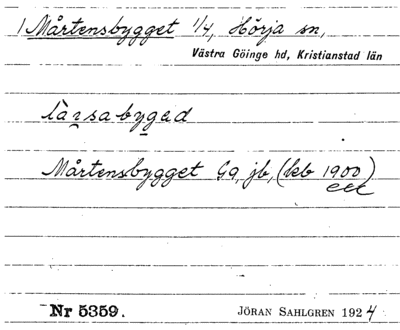 1 Mårtensbygget 1/4, Hörja sn,
Västra Göinge hd, Kristianstad län
Mårtensbygget Gg, jb, (kb 1900)
Nr 5359. JÖRAN SAHLGREN 1924